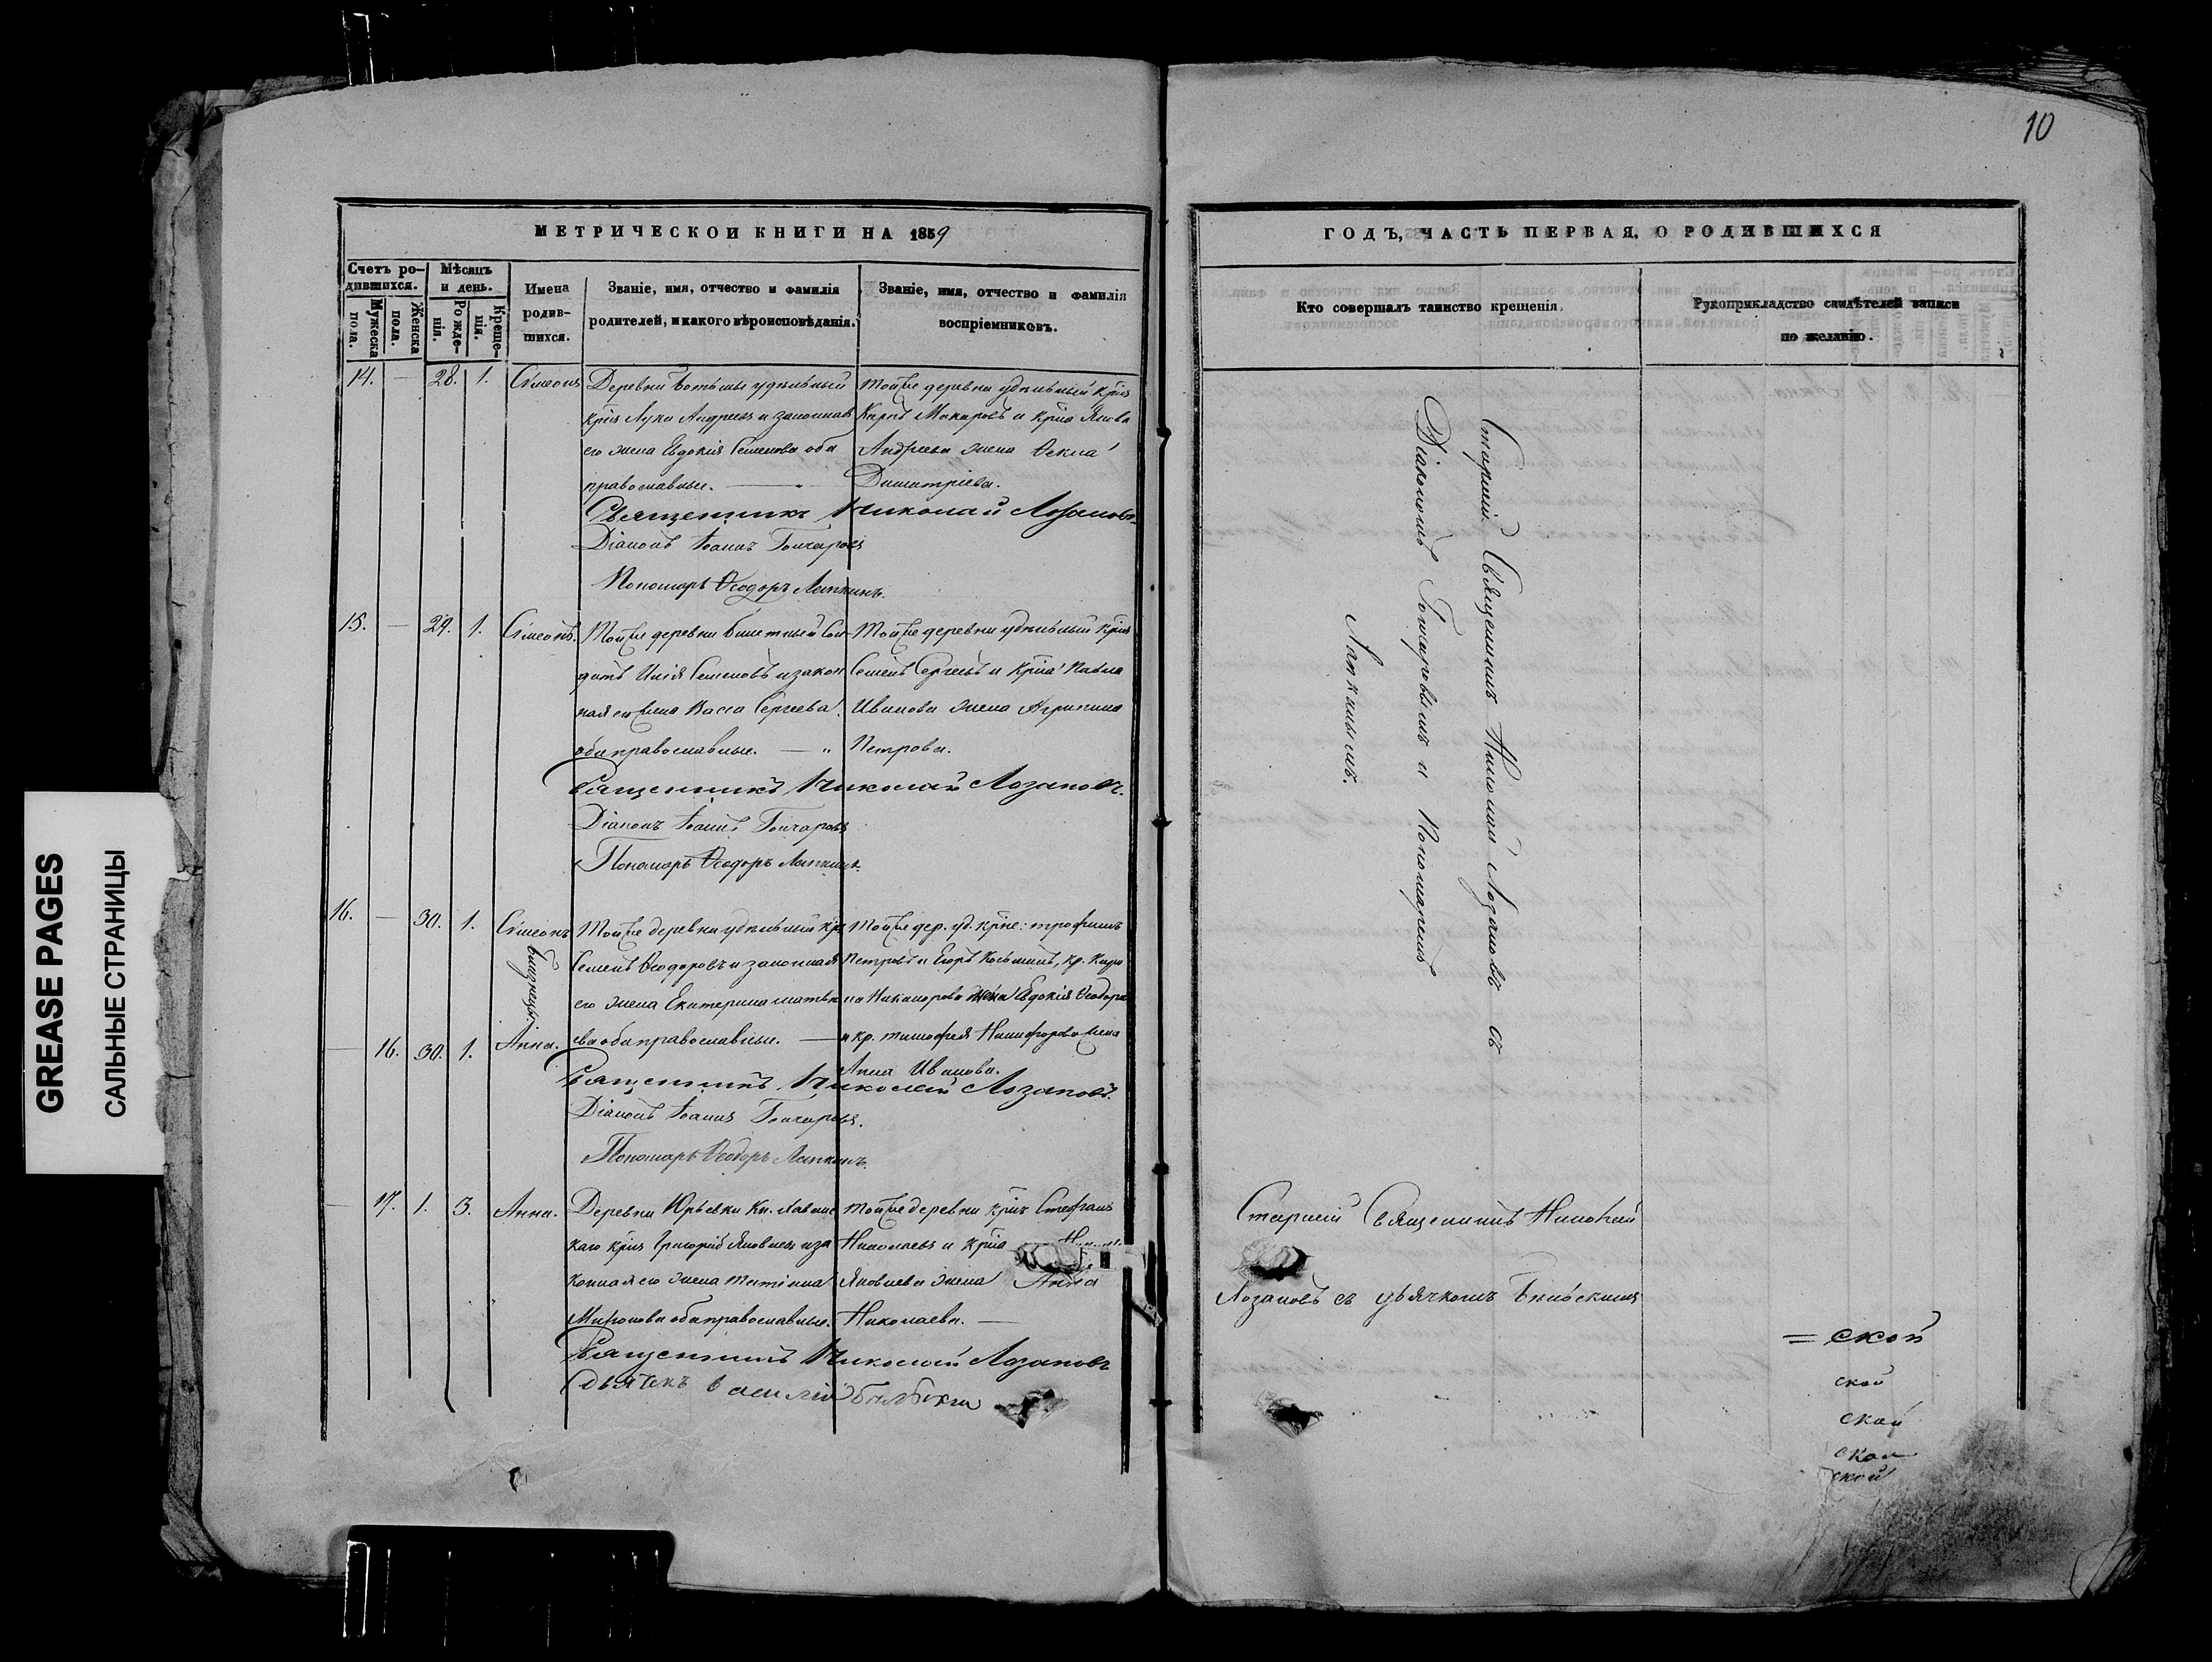 10
МЕТРИЧЕСКОИ КНИГИ НА 1859
ГОДЪ, ЧАСТЬ ПЕРВАЯ, О РОДИВШИХСЯ
Счетъ ро-
дившихся.
Мужеска
пола.
Женска
пола.
Мѣсяцъ
и день.
Рожде-
нія.
Креще-
нія.
Имена
родив-
шихся.
Званіе, имя, отчество и фамилія
родителей, и какого вѣроисповѣданія.
Званіе, имя, отчество и фамилія
воспріемниковъ.
Кто совершалъ таинство крещенія.
Рукоприкладство свидѣтелей записи
по желанію.
14. — 28. 1. Сѵмеонъ
Деревни удѣльный
крнъ Лука Андреевъ и законная
его жена Евдокія Семенова оба
православные.
Тойже деревни удѣльный крнъ
Карпъ Макаровъ и крна Якова
Андреева жена Ѳекла
Димитріева.
Священникъ Николай Лозановъ
Діаконъ Іоаннъ Гончаровъ
Пономарь Ѳеодоръ Лапкинъ.
15. — 29. 1. Сѵмеонъ.
Тойже деревни билетный Сол-
датъ Илія Семеновъ и закон
ная его жена Васса Сергеева
оба православные. — "
Тойже деревни удѣльный крнъ
Семенъ Сергеевъ и крна Павла
Иванова жена Агрипина
Петрова.
Священникъ Николай Лозановъ.
Діаконъ Іоаннъ Гончаровъ
Пономарь Ѳеодоръ Лапкинъ.
16. — 30. 1. Сѵмеонъ
близнецы.
— 16. 30. 1. Анна.
Тойже деревни удѣльный кр
Семенъ Ѳеодоровъ и законная
его жена Екатерина Матвѣ
ева оба православные. —
Тойже дер. уд. крне: Трофимъ
Петровъ и Егоръ Косьминъ, кр.
Никанорова жена Евдокія Ѳеодорова
и кр. Тимофея Никифорова жена
Анна Иванова.
Священникъ Николай Лозановъ.
Діаконъ Іоаннъ Гончаровъ.
Пономарь Ѳеодоръ Лапкинъ.
— 17. 1. 3. Анна.
Деревни Юрьевки Кн.
каго крнъ Григорій Яковлевъ и за
конная его жена Татіана
Миронова оба православные.
Тойже деревни крнъ Стефанъ
Николаевъ и крна
Яковлева жена Анна
Николаева. —
Священникъ Николай Лозановъ
Дьячекъ Василій
Старшій Священникъ Николай Лозановъ съ
Діакономъ Гончаровымъ и Пономаремъ
Лапкинымъ.
Старшій Священникъ Николай
Лозановъ съ дьячкомъ
= ской
ской
ской
ской
ской
GREASE PAGES
САЛЬНЫЕ СТРАНИЦЫ